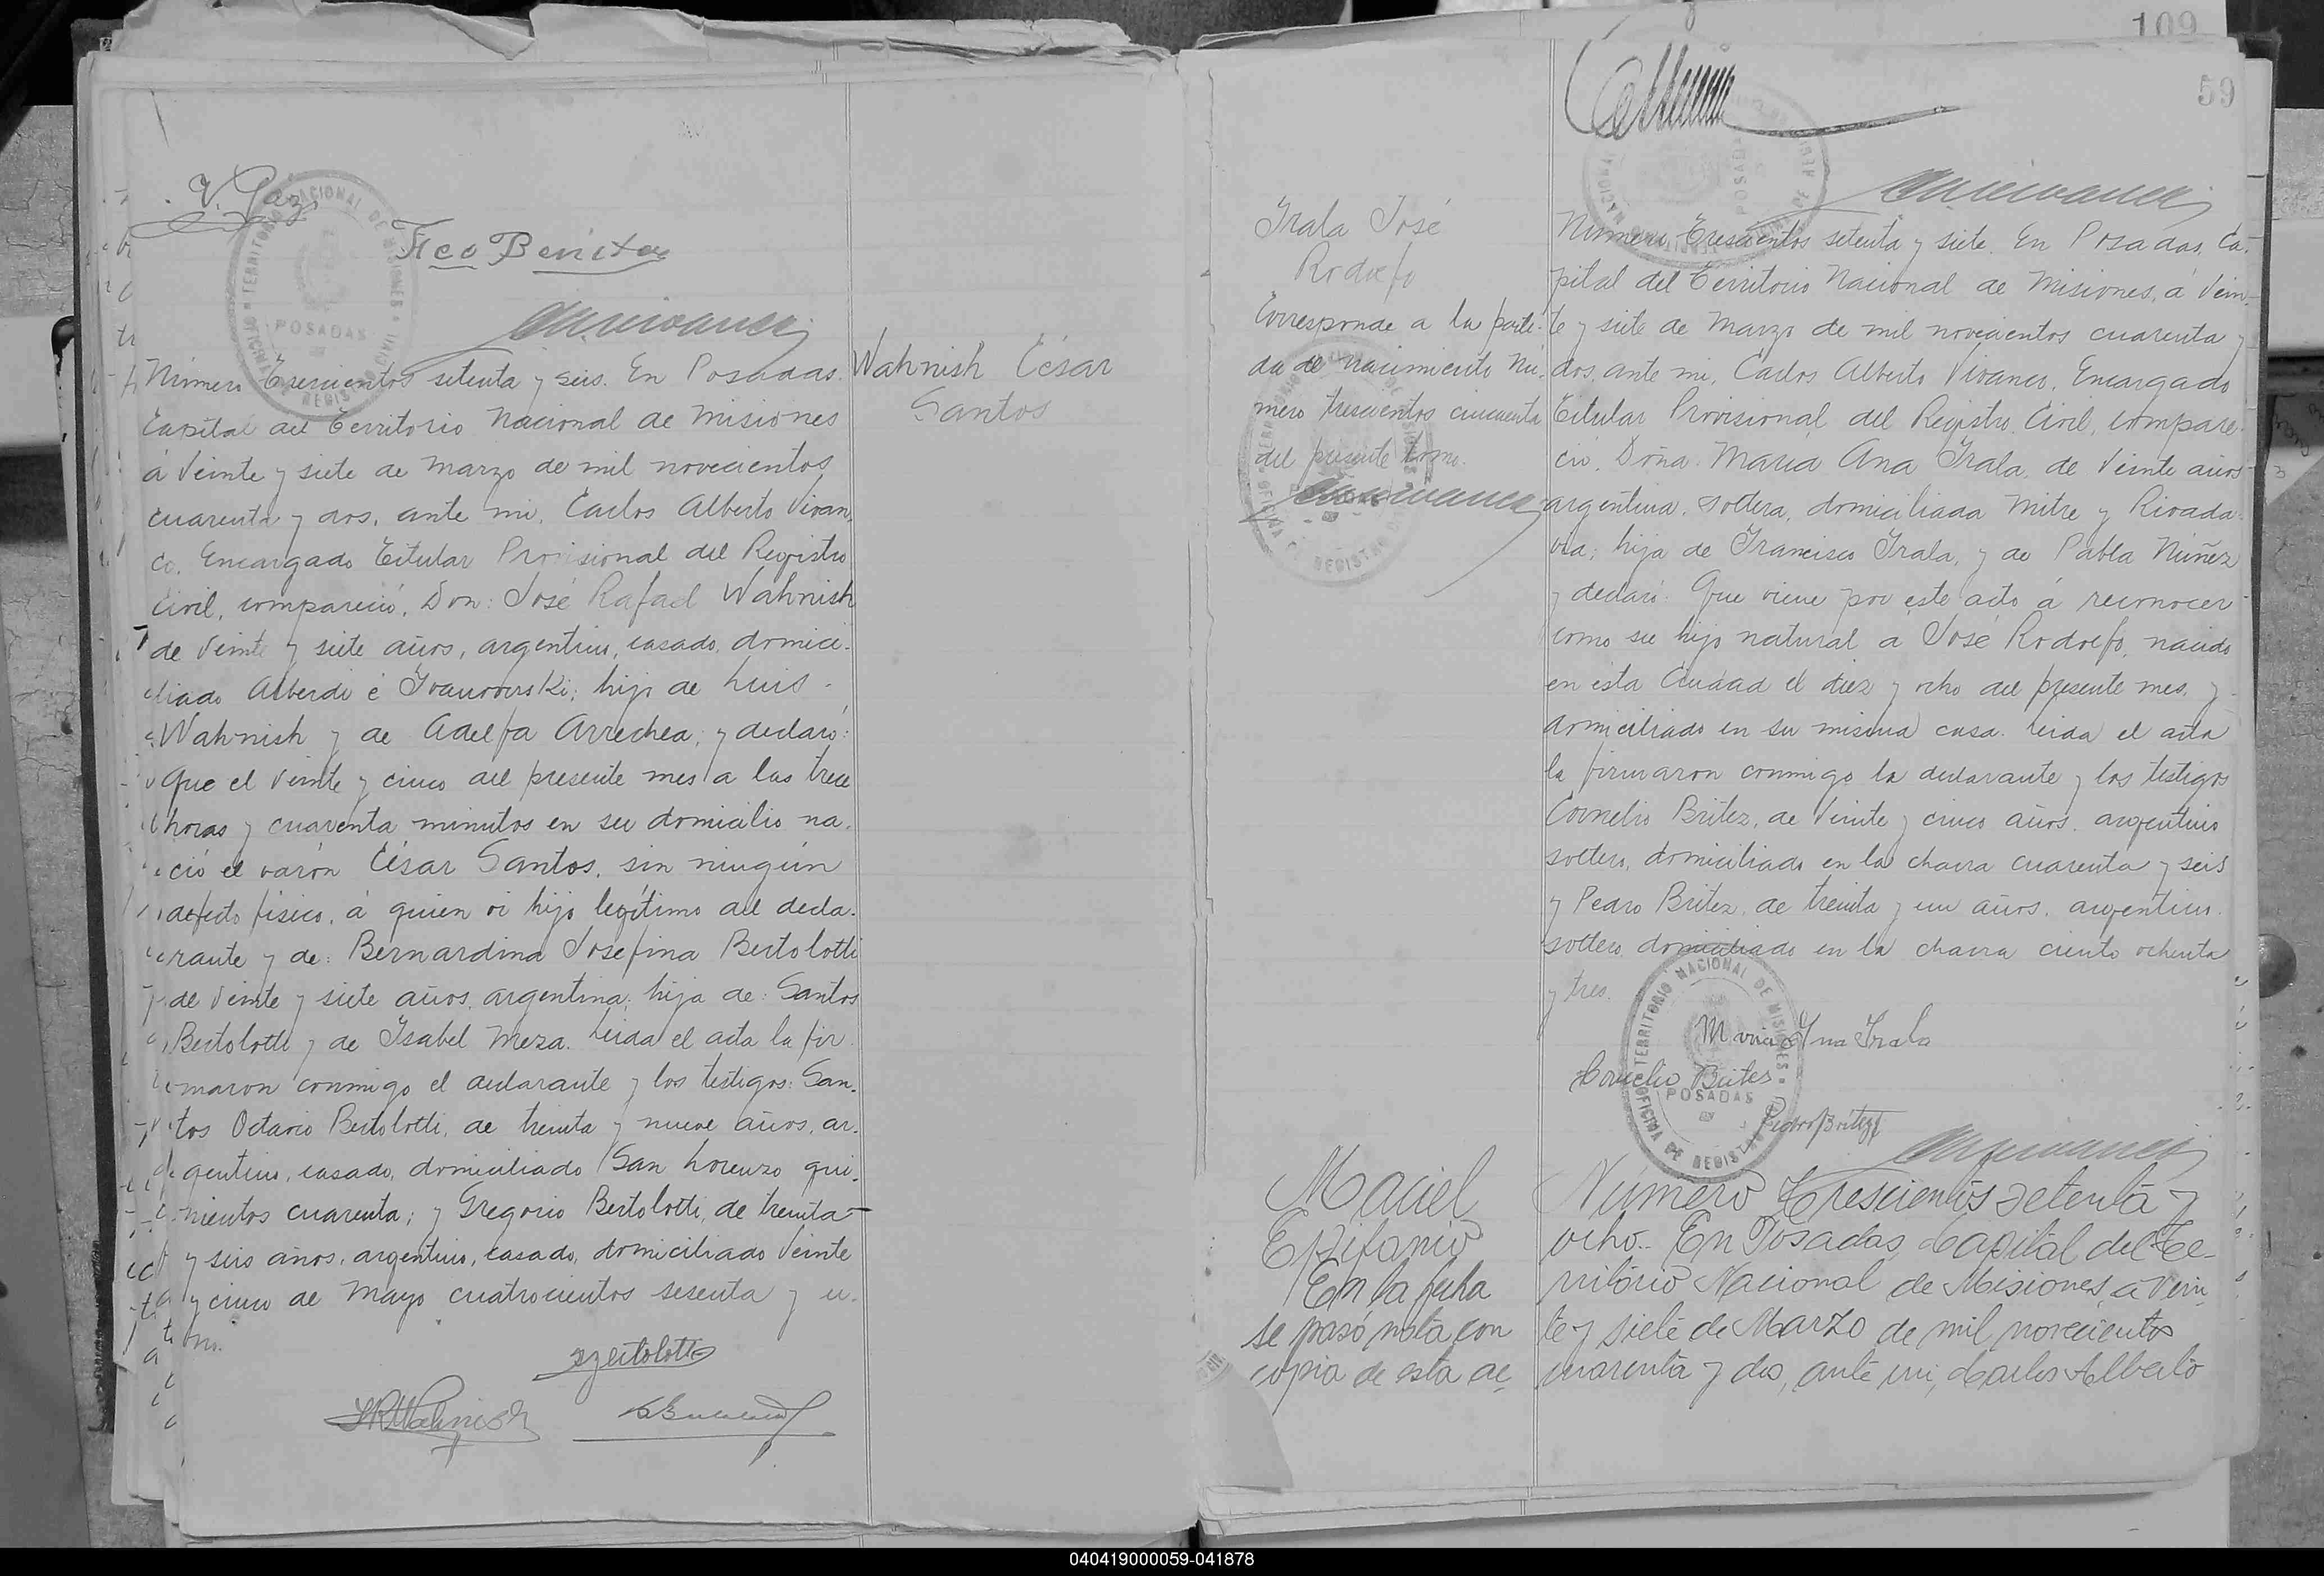 V. Paz
Fco Benitez
Wahnish César
Santos
Número Trescientos setenta y seis. En Posadas.
Capital del Territorio Nacional de Misiones
á Veinte y siete de Marzo de mil novecientos
cuarenta y dos, ante mi, Carlos Alberto Vivan,
co. Encargado Titular Provisional del Registro
Civil, compareció, Don: José Rafael Wahnish
de Veinte y siete años, argentino, casado, domici-
liado Alberdi é Ivanowski; hijo de Luis
Wahnish y de Adelfa Arrechea; y declaró:
Que el Veinte y cinco del presente mes a las trece
horas y cuarenta minutos en su domicilio na,
ció el varón César Santos, sin ningún
defecto físico, á quien vi hijo legítimo del decla-
rante y de: Bernardina Josefina Bertolotti
de Veinte y siete años, argentina; hija de: Santos
Bertolotti y de Isabel Meza. Leida el acta la fir
maron conmigo el declarante y los testigos: San-
tos Octavio Bertolotti, de treinta y nueve años, ar-
gentino, casado, domiciliado San Lorenzo qui-
nientos cuarenta; y Gregorio Bertolotti, de treinta
y seis años, argentino, casado, domiciliado Veinte
y cinco de Mayo cuatrocientos sesenta y u-
no.
Bertolotti
JRWahnish
TERRITORIO NACIONAL DE MISIONES
POSADAS
OFICINA DE REGISTRO CIVIL
109
59
Irala José
Rodolfo
Corresponde a la parti-
da de nacimiento Nú-
mero trescientos cincuenta
del presente tomo.
Número Trescientos setenta y siete. En Posadas, Ca-
pital del Territorio Nacional de Misiones, á Vein-
te y siete de Marzo de mil novecientos cuarenta y
dos, ante mi, Carlos Alberto Vivanco, Encargado
Titular Provisional del Registro Civil, compare-
ció, Doña: María Ana Irala, de Veinte años
argentina, soltera, domiciliada Mitre y Rivada-
via; hija de Francisco Irala, y de Pabla Núñez
y declaró: Que viene por este acto á reconocer
como su hijo natural á José Rodolfo, nacido
en esta Ciudad el diez y ocho del presente mes, y
domiciliado en su misma casa. Leida el acta
la firmaron conmigo la declarante y los testigos
Cornelio Britez, de Veinte y cinco años, argentino
soltero, domiciliado en la chacra cuarenta y seis
y Pedro Britez, de treinta y un años, argentino
soltero, domiciliado en la chacra ciento ochenta
y tres.
Maria Ana Irala
Cornelio Brites
Pedro Britez
TERRITORIO NACIONAL DE MISIONES
POSADAS
OFICINA DE REGISTRO CIVIL
Maciel
Epifanio
En la fecha
se pasó nota con
copia de esta ac-
Número Trescientos setenta y
ocho. En Posadas, Capital del Te-
rritorio Nacional de Misiones, a Vein-
te y siete de Marzo de mil novecientos
cuarenta y dos, ante mi, Carlos Alberto
040419000059-041878